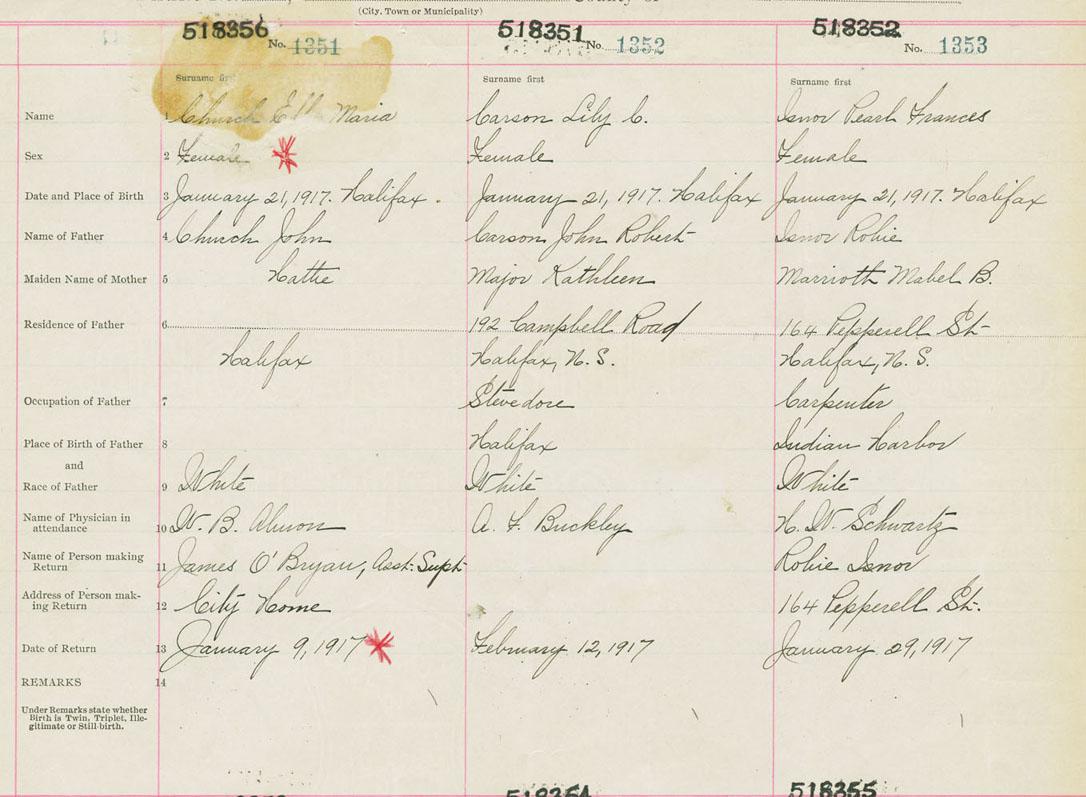 (City, Town or Municipality)
518356 518351 518352
No. 1351 No. 1352 No. 1353
Surname first Surname first Surname first
Name 1 Church Maria Carson Lily C. Isnor Pearl Frances
Sex 2 Female Female Female
Date and Place of Birth 3 January 21, 1917. Halifax. January 21, 1917. Halifax January 21, 1917. Halifax
Name of Father 4 Church John Carson John Robert Isnor Robie
Maiden Name of Mother 5 Hattie Major Kathleen Marrioth Mabel B.
Residence of Father 6 192 Campbell Road 164 Pepperell St.
Halifax Halifax, N. S. Halifax, N. S.
Occupation of Father 7 Stevedore Carpenter
Place of Birth of Father 8 Halifax Indian Harbor
and
Race of Father 9 White White White
Name of Physician in
attendance 10 W. B. Almon A. F. Buckley H. W. Schwartz
Name of Person making
Return 11 James O'Bryan, Asst. Supt. Robie Isnor
Address of Person mak-
ing Return 12 City Home 164 Pepperell St.
Date of Return 13 January 9, 1917 February 12, 1917 January 29, 1917
REMARKS 14
Under Remarks state whether
Birth is Twin, Triplet, Ille-
gitimate or Still-birth.
518354 518355